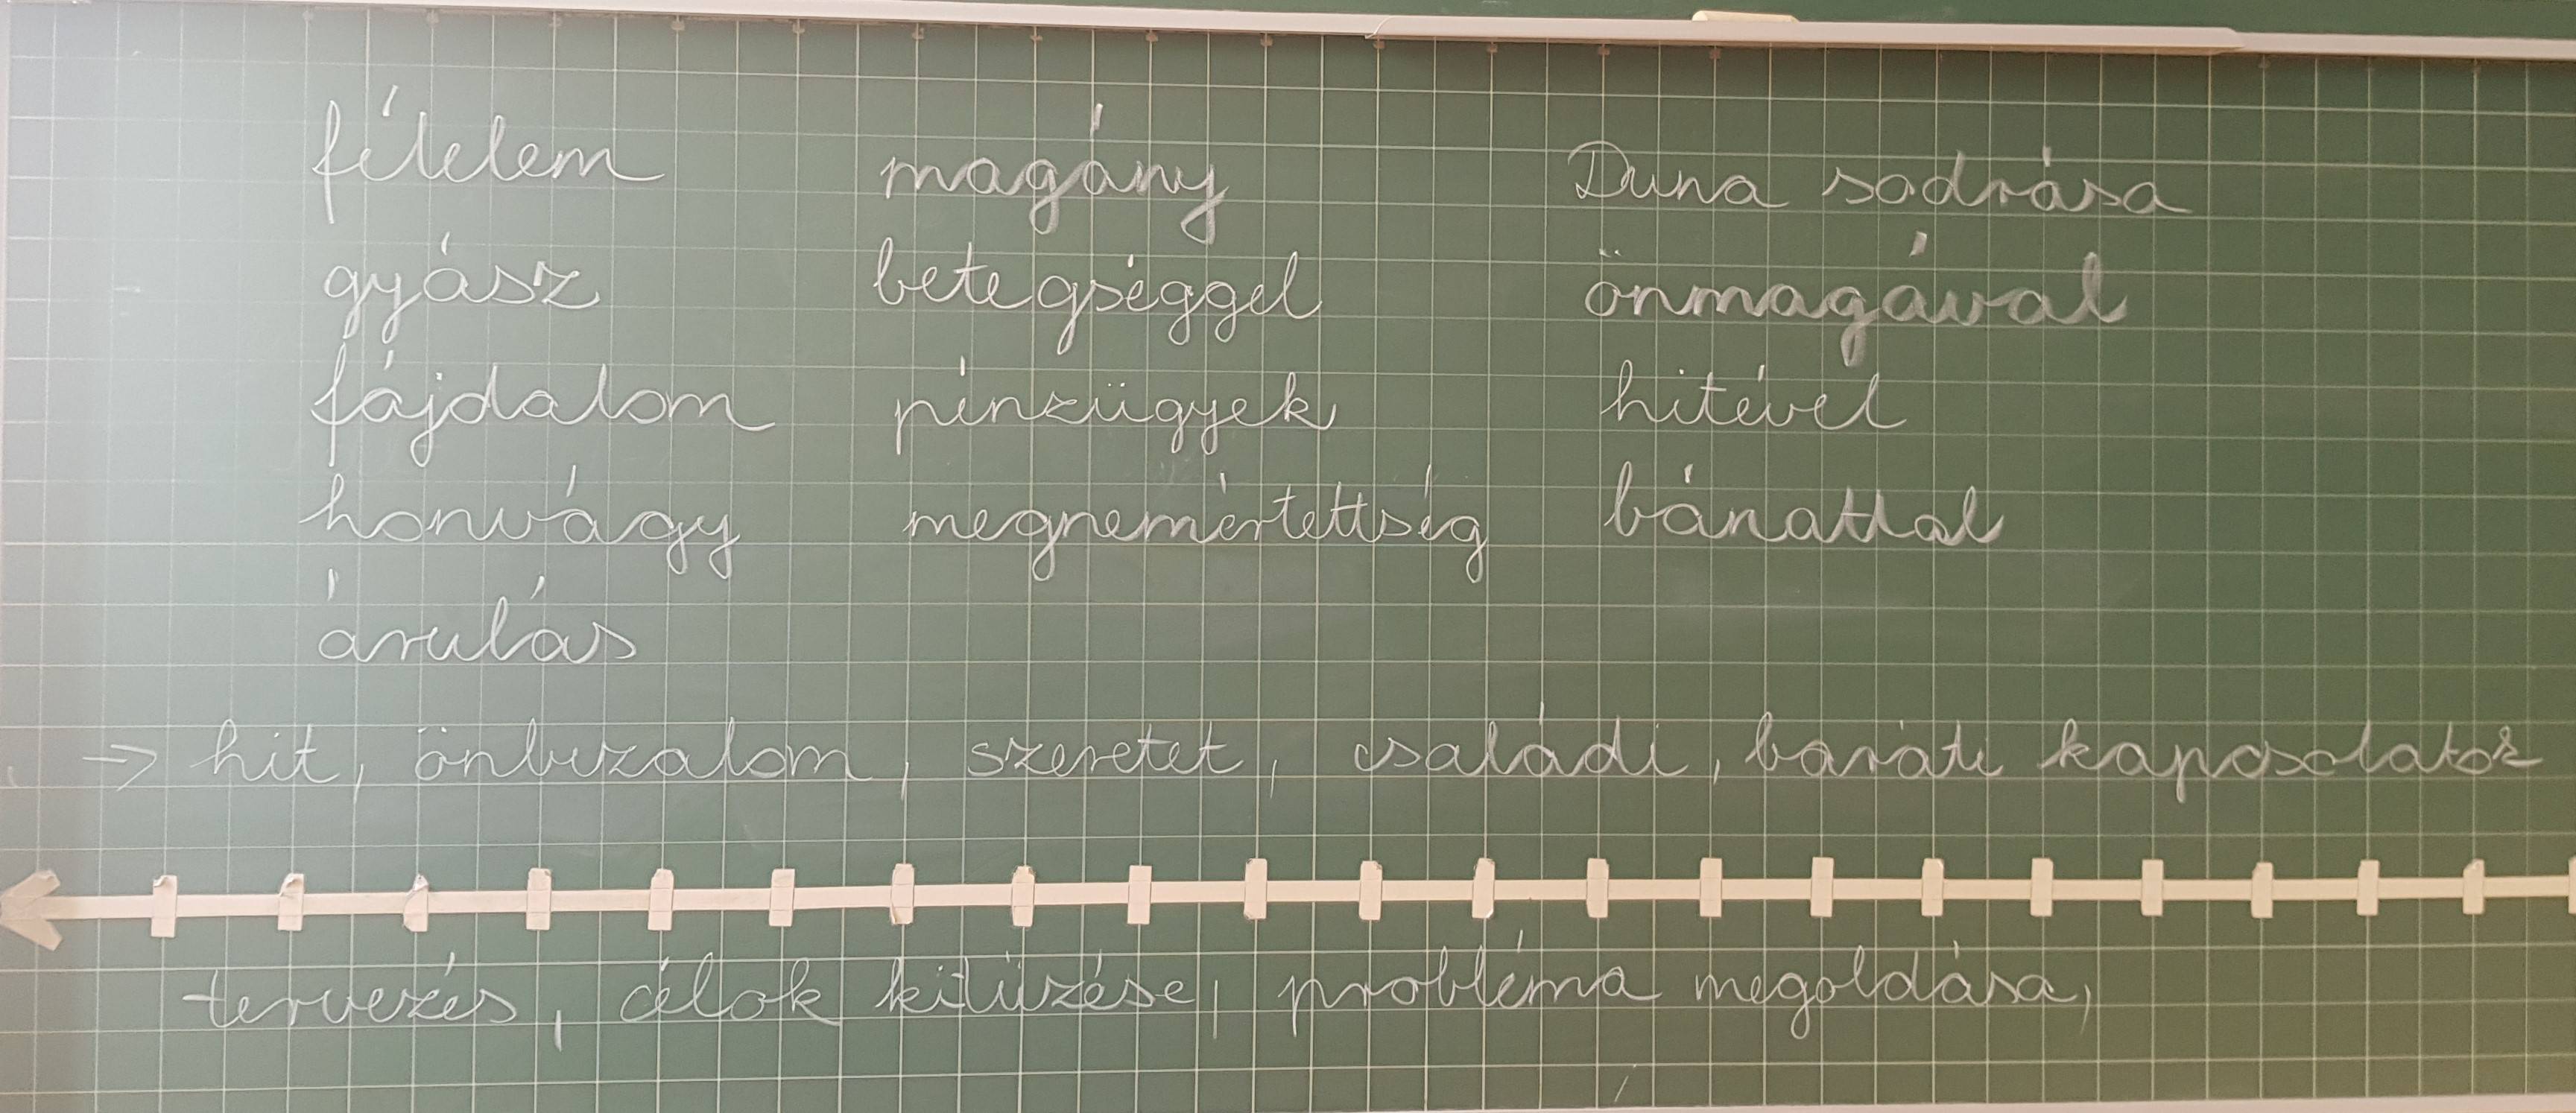 félelem magány Duna sodrása
gyász betegséggel önmagával
fájdalom pénzügyek hitével
honvágy megnemértettség bánattal
árulás
→ hit, önbizalom, szeretet, családi, baráti kapcsolatok
tervezés, célok kitűzése, probléma megoldása,